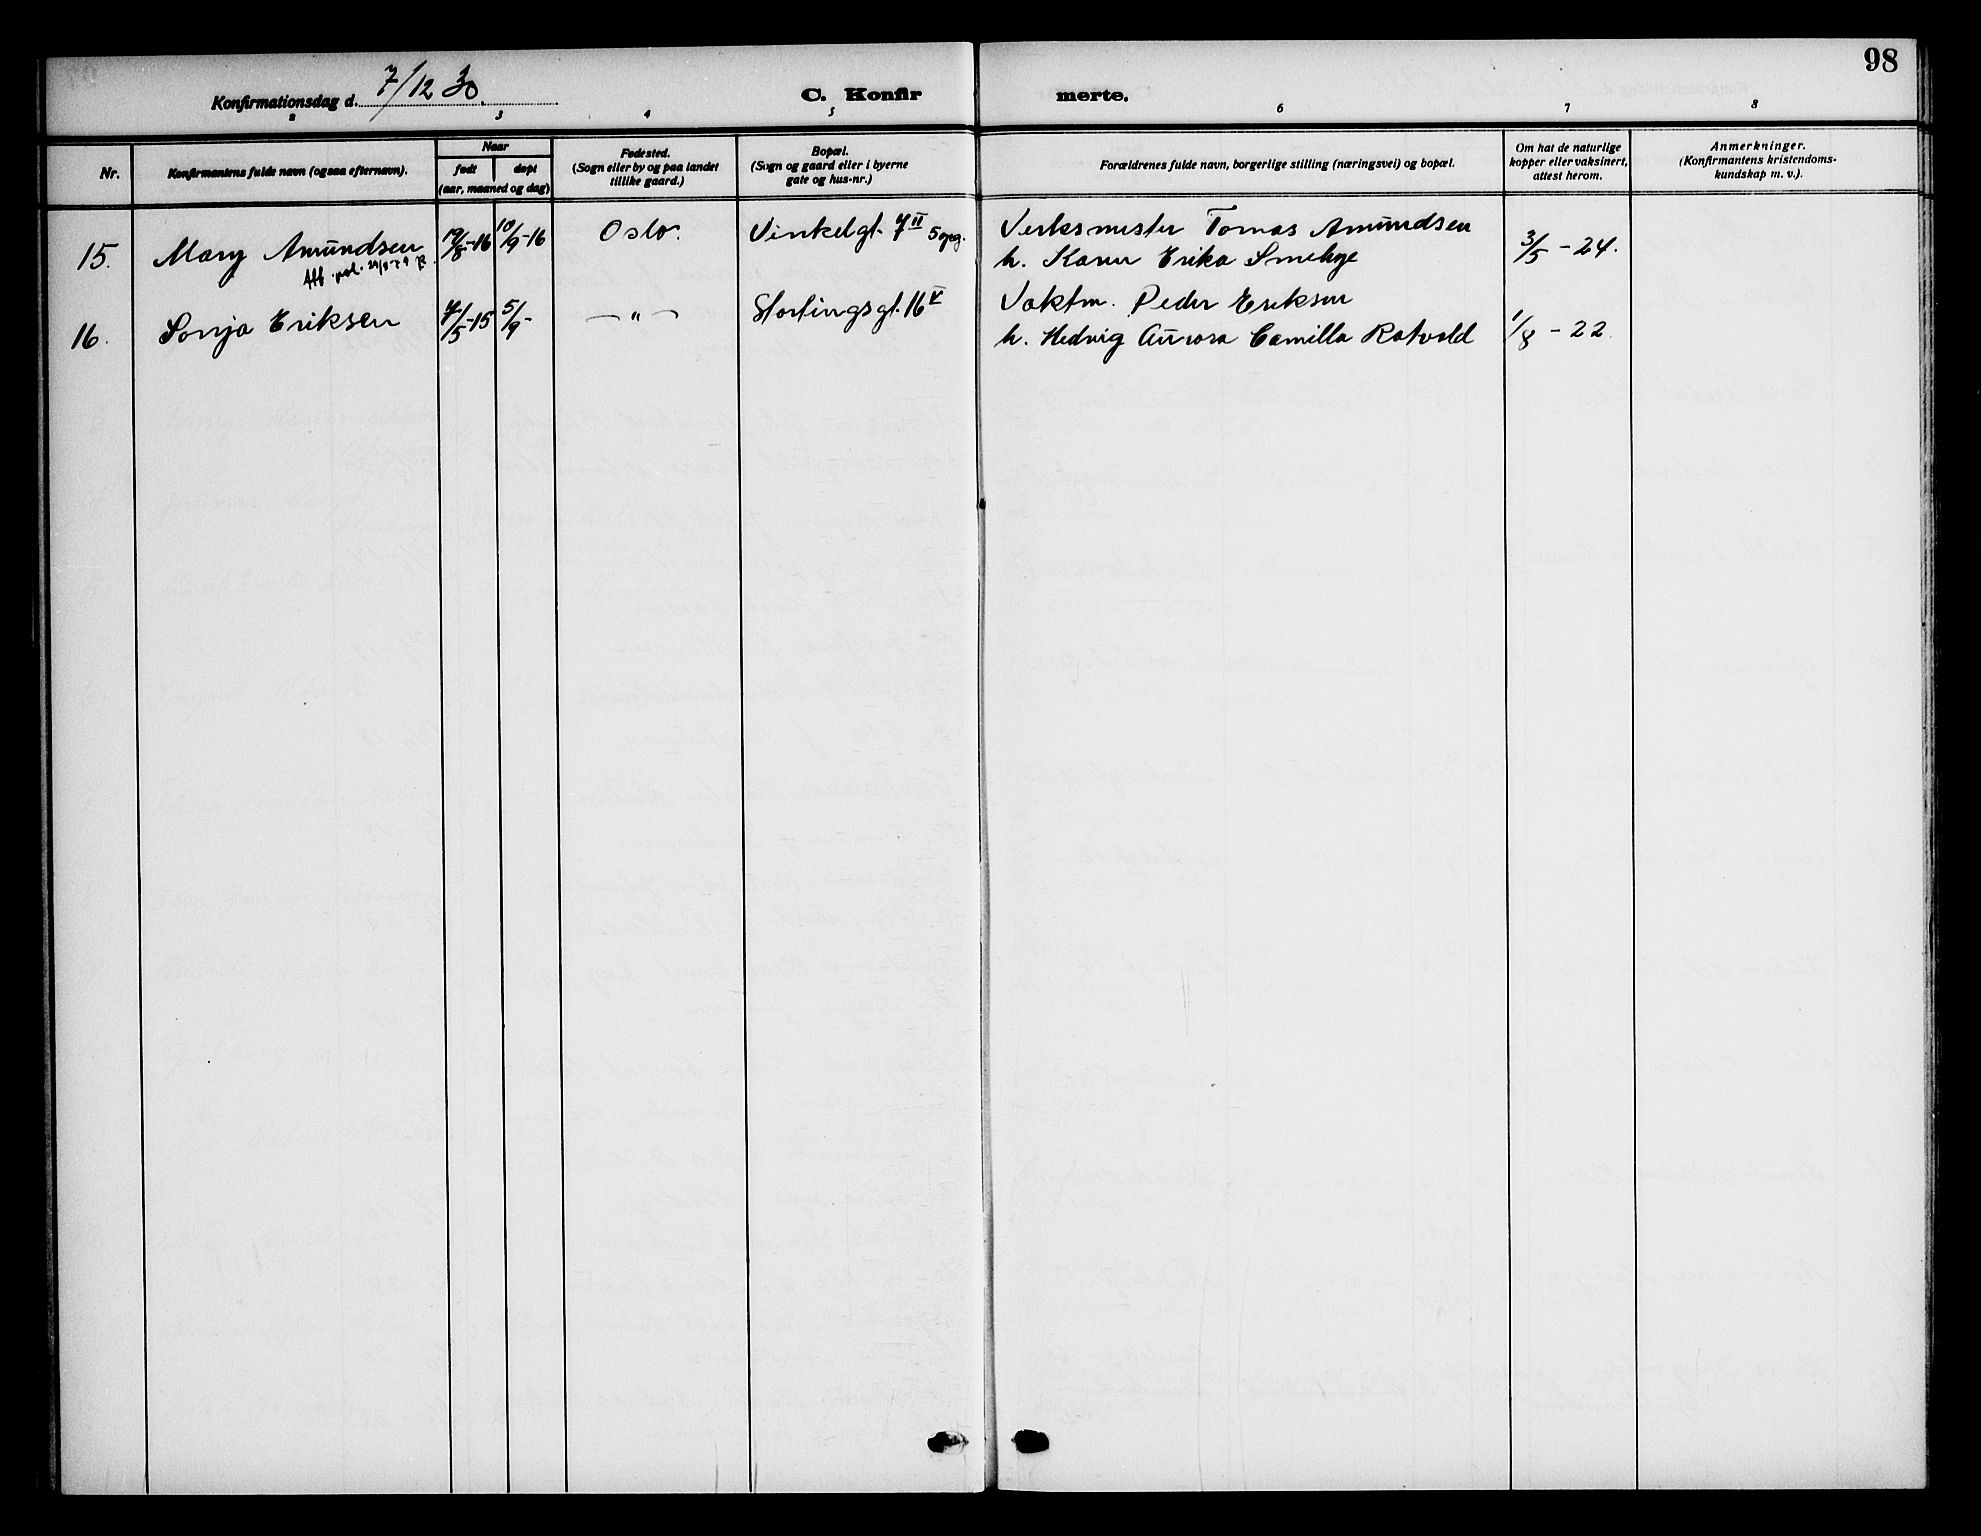 98
Konfirmationsdag d. 7/12 30. C. Konfirmerte.
2 3 4 5 6 7 8
Nr.
Konfirmantens fulde navn (ogsaa efternavn).
Naar
født
døpt
(aar, maaned og dag)
Fødested.
(Sogn eller by og paa landet
tillike gaard.)
Bopæl.
(Sogn og gaard eller i byerne
gate og hus-nr.)
Forældrenes fulde navn, borgerlige stilling (næringsvei) og bopæl.
Om hat de naturlige
kopper eller vaksinert,
attest herom.
Anmerkninger.
(Konfirmantens kristendoms-
kundskap m. v.).
15. Mary Amundsen 19/8-16 10/9-16 Oslo. Vinkelgt. 7 II 5 opg. Verksmester Tomas Amundsen
h. Karen Erika Smehye 3/5 - 24.
16. Sonja Eriksen 7/5-15 5/9- — " — Stortingsgt. 16 V Vaktm. Peder Eriksen
h. Hedvig Aurora Camilla Ratvold 1/8 - 22.